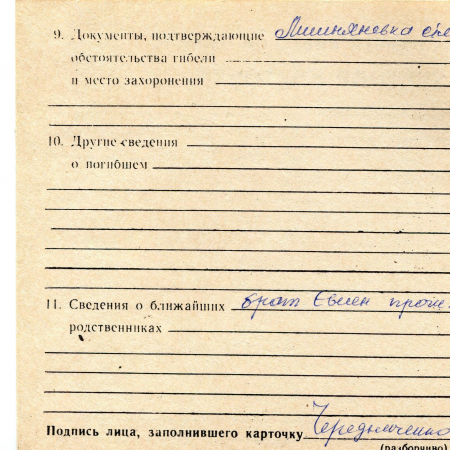 9. Документы, подтверждающие
обстоятельства гибели
и место захоронения
10. Другие сведения
о погибшем
11. Сведения о ближайших брат Евген прож.
родственниках
Подпись лица, заполнившего карточку Чередниченко
(разборчиво)